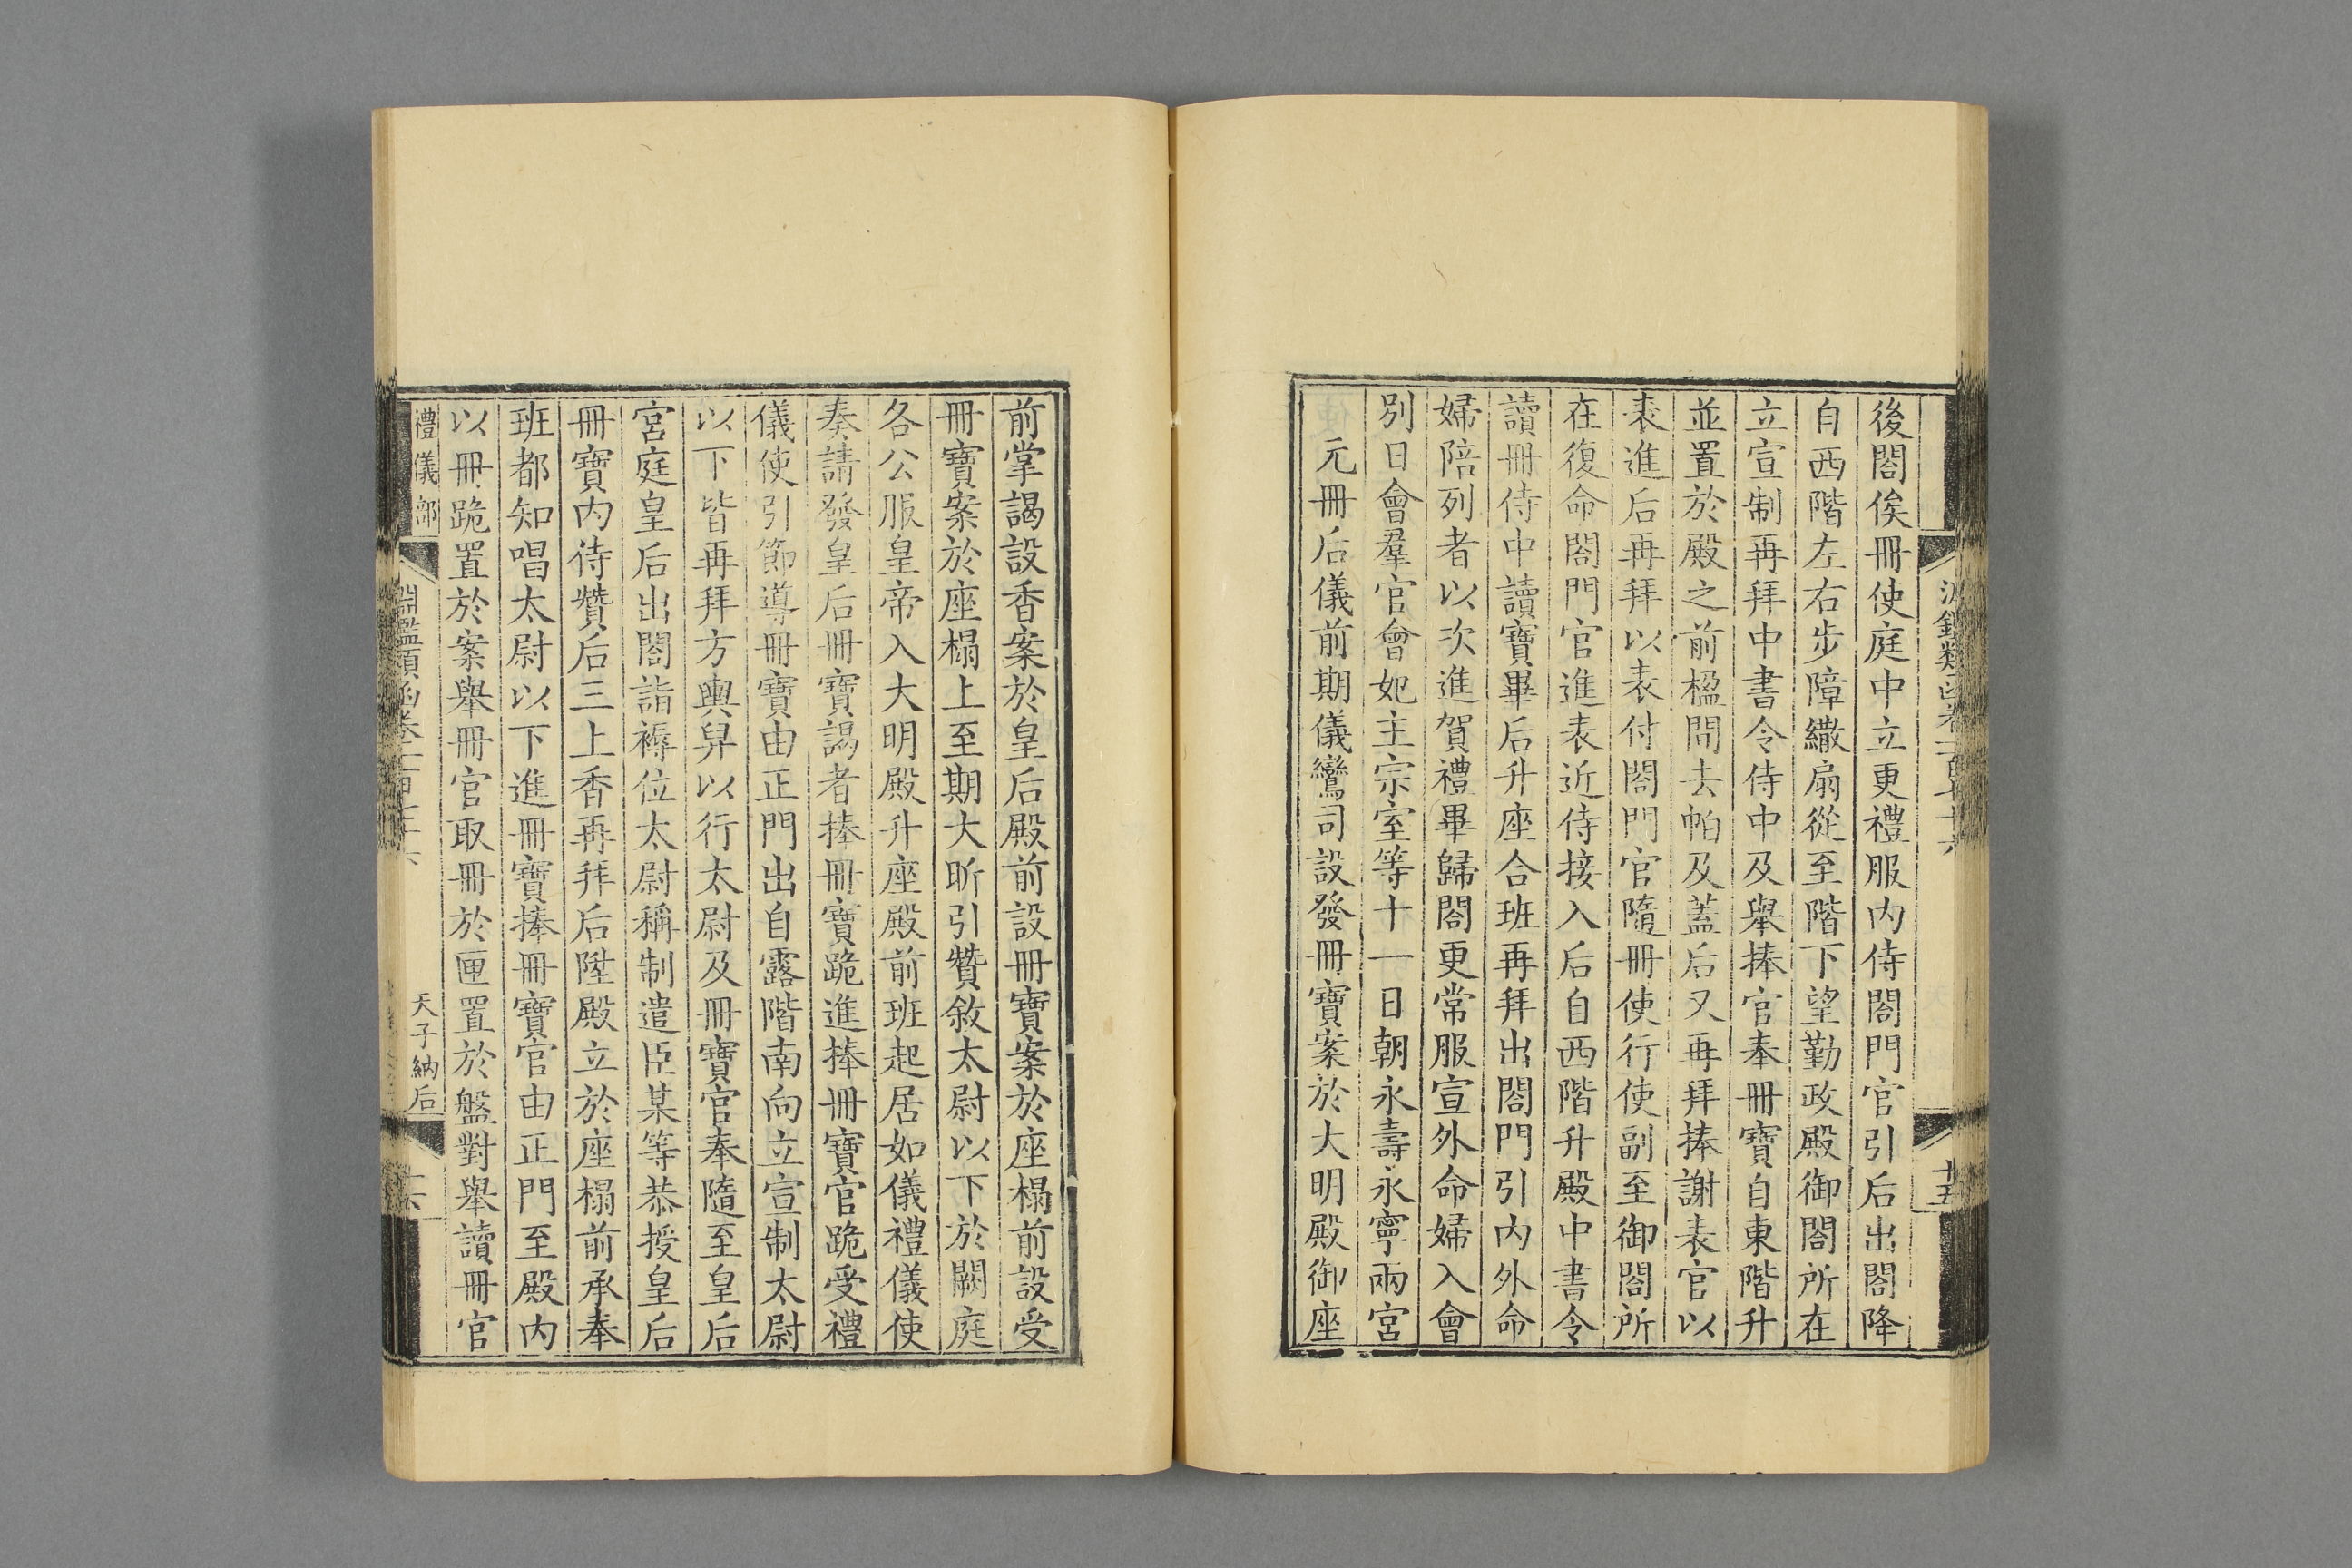 後閤俟冊使庭中立更禮服內侍閤門官引后出閤降
自西階左右步障繖扇從至階下望勤政殿御閤所在
立宣制再拜中書令侍中及舉捧官奉冊寶自東階升
並置於殿之前楹間去帕及蓋后又再拜捧謝表官以
表進后再拜以表付閤門官隨冊使行使副至御閤所
在復命閤門官進表近侍接入后自西階升殿中書令
讀冊侍中讀寶畢后升座合班再拜出閤門引內外命
婦陪列者以次進賀禮畢歸閤更常服宣外命婦入會
別日會羣官會妃主宗室等十一日朝永壽永寧兩宮
元冊后儀前期儀鸞司設發冊寶案於大明殿御座
十五
前掌謁設香案於皇后殿前設冊寶案於座榻前設受
冊寶案於座榻上至期大昕引贊敘太尉以下於闕庭
各公服皇帝入大明殿升座殿前班起居如儀禮儀使
奏請發皇后冊寶謁者捧冊寶跪進捧冊寶官跪受禮
儀使引節導冊寶由正門出自露階南向立宣制太尉
以下皆再拜方輿舁以行太尉及冊寶官奉隨至皇后
宮庭皇后出閤詣褥位太尉稱制遣臣某等恭授皇后
冊寶內待贊后三上香再拜后陞殿立於座榻前承奉
班都知唱太尉以下進冊寶捧冊寶官由正門至殿內
以冊跪置於案舉冊官取冊於匣置於盤對舉讀冊官
禮儀部
天子納后